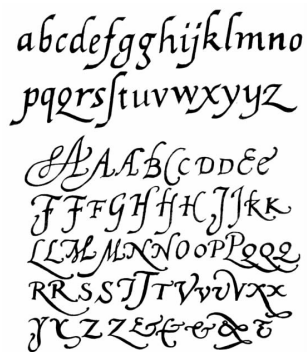 abcdefgghijklmno
pqQrsſtuvwxyyz
AAABCCDDEe
FFFGHHH,JJKK
LLMMNNOOPPQQQ
RRSSTJTVVvVXx
YYZZ&&&&&